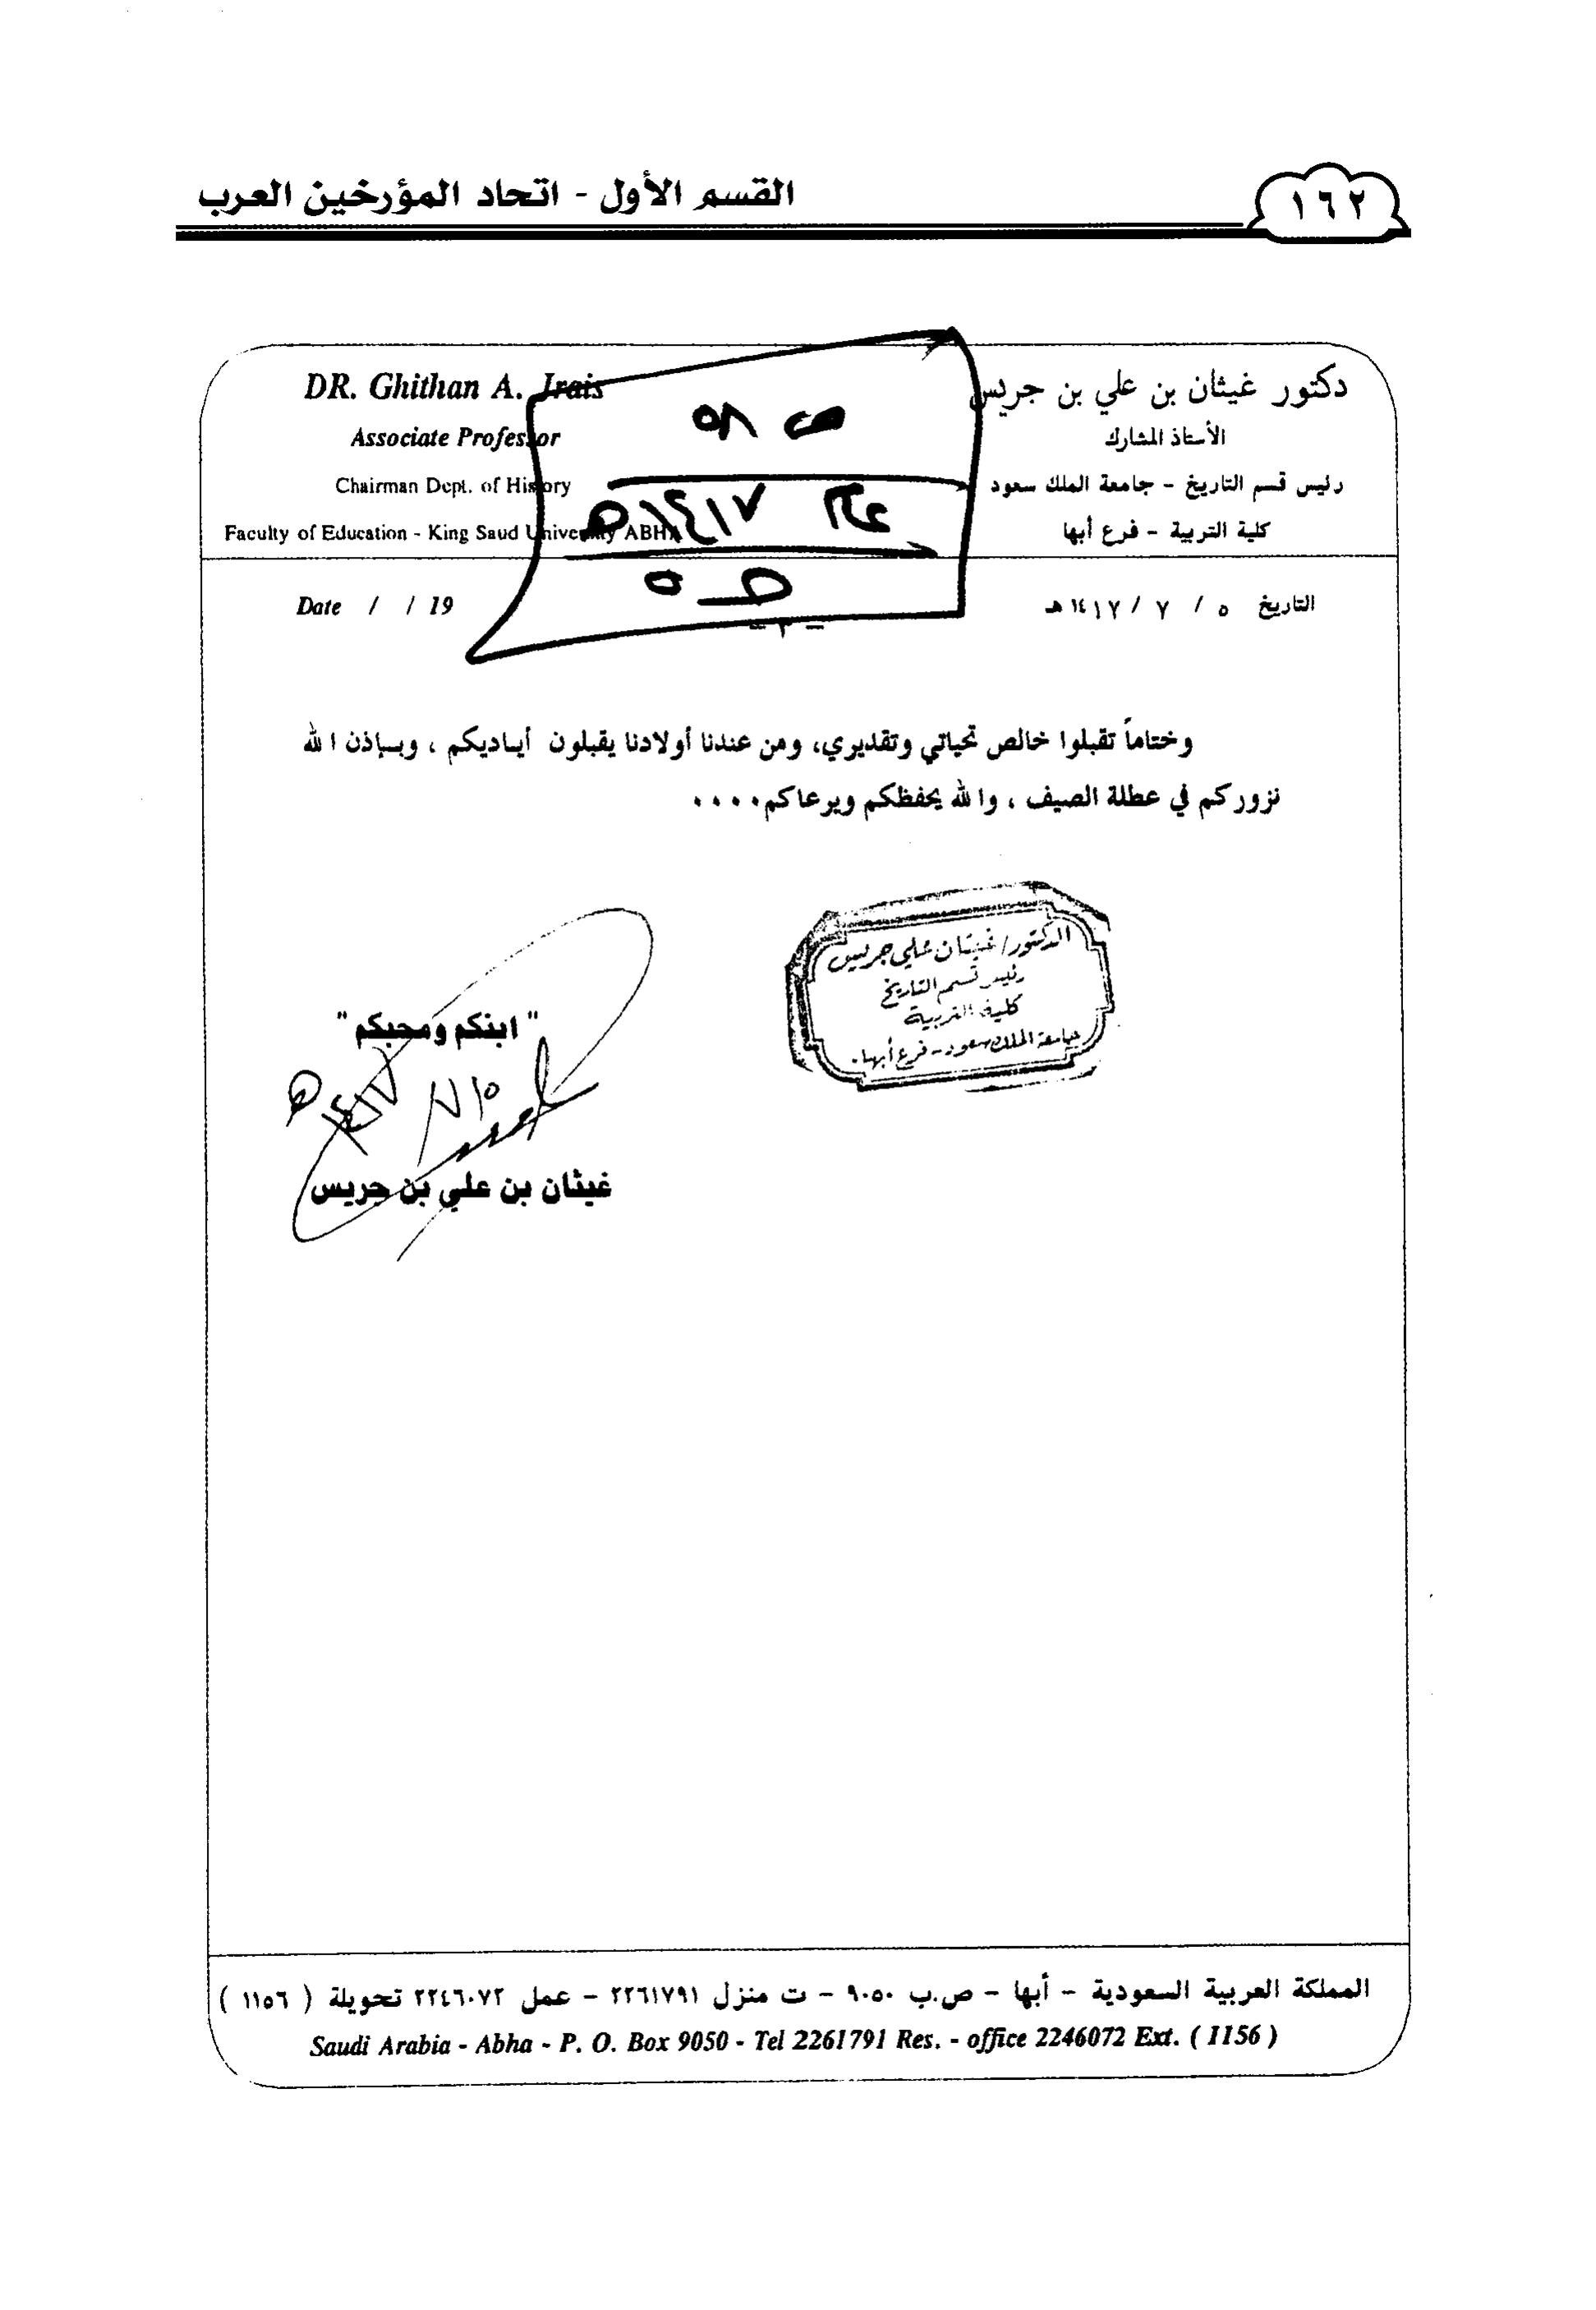 ١٦٢
القسم الأول - اتحاد المؤرخين العرب
دكتور غيثان بن علي بن جريس
الأستاذ المشارك
رئيس قسم التاريخ - جامعة الملك سعود
كلية التربية - فرع أبها
DR. Ghithan A. Jrais
Associate Professor
Chairman Dept. of History
Faculty of Education - King Saud University ABHA
عام ١٤١٧هـ
التاريخ ٥ / ٧ / ١٤١٧هـ
Date / / 19
- ٢ -
وختاماً تقبلوا خالص تحياتي وتقديري، ومن عندنا أولادنا يقبلون أياديكم ، وبإذن الله
نزوركم في عطلة الصيف ، والله يحفظكم ويرعاكم٠٠٠٠
الدكتور/ غيثان علي جريس
رئيس قسم التاريخ
كلية التربية
جامعة الملك سعود - فرع أبها.
" ابنكم ومحبكم "
٧/٥
١٤١٧هـ
غيثان بن علي بن جريس
المملكة العربية السعودية - أبها - ص.ب ٩٠٥٠ - ت منزل ٢٢٦١٧٩١ - عمل ٢٢٤٦٠٧٢ تحويلة ( ١١٥٦ )
Saudi Arabia - Abha - P. O. Box 9050 - Tel 2261791 Res. - office 2246072 Ext. ( 1156 )